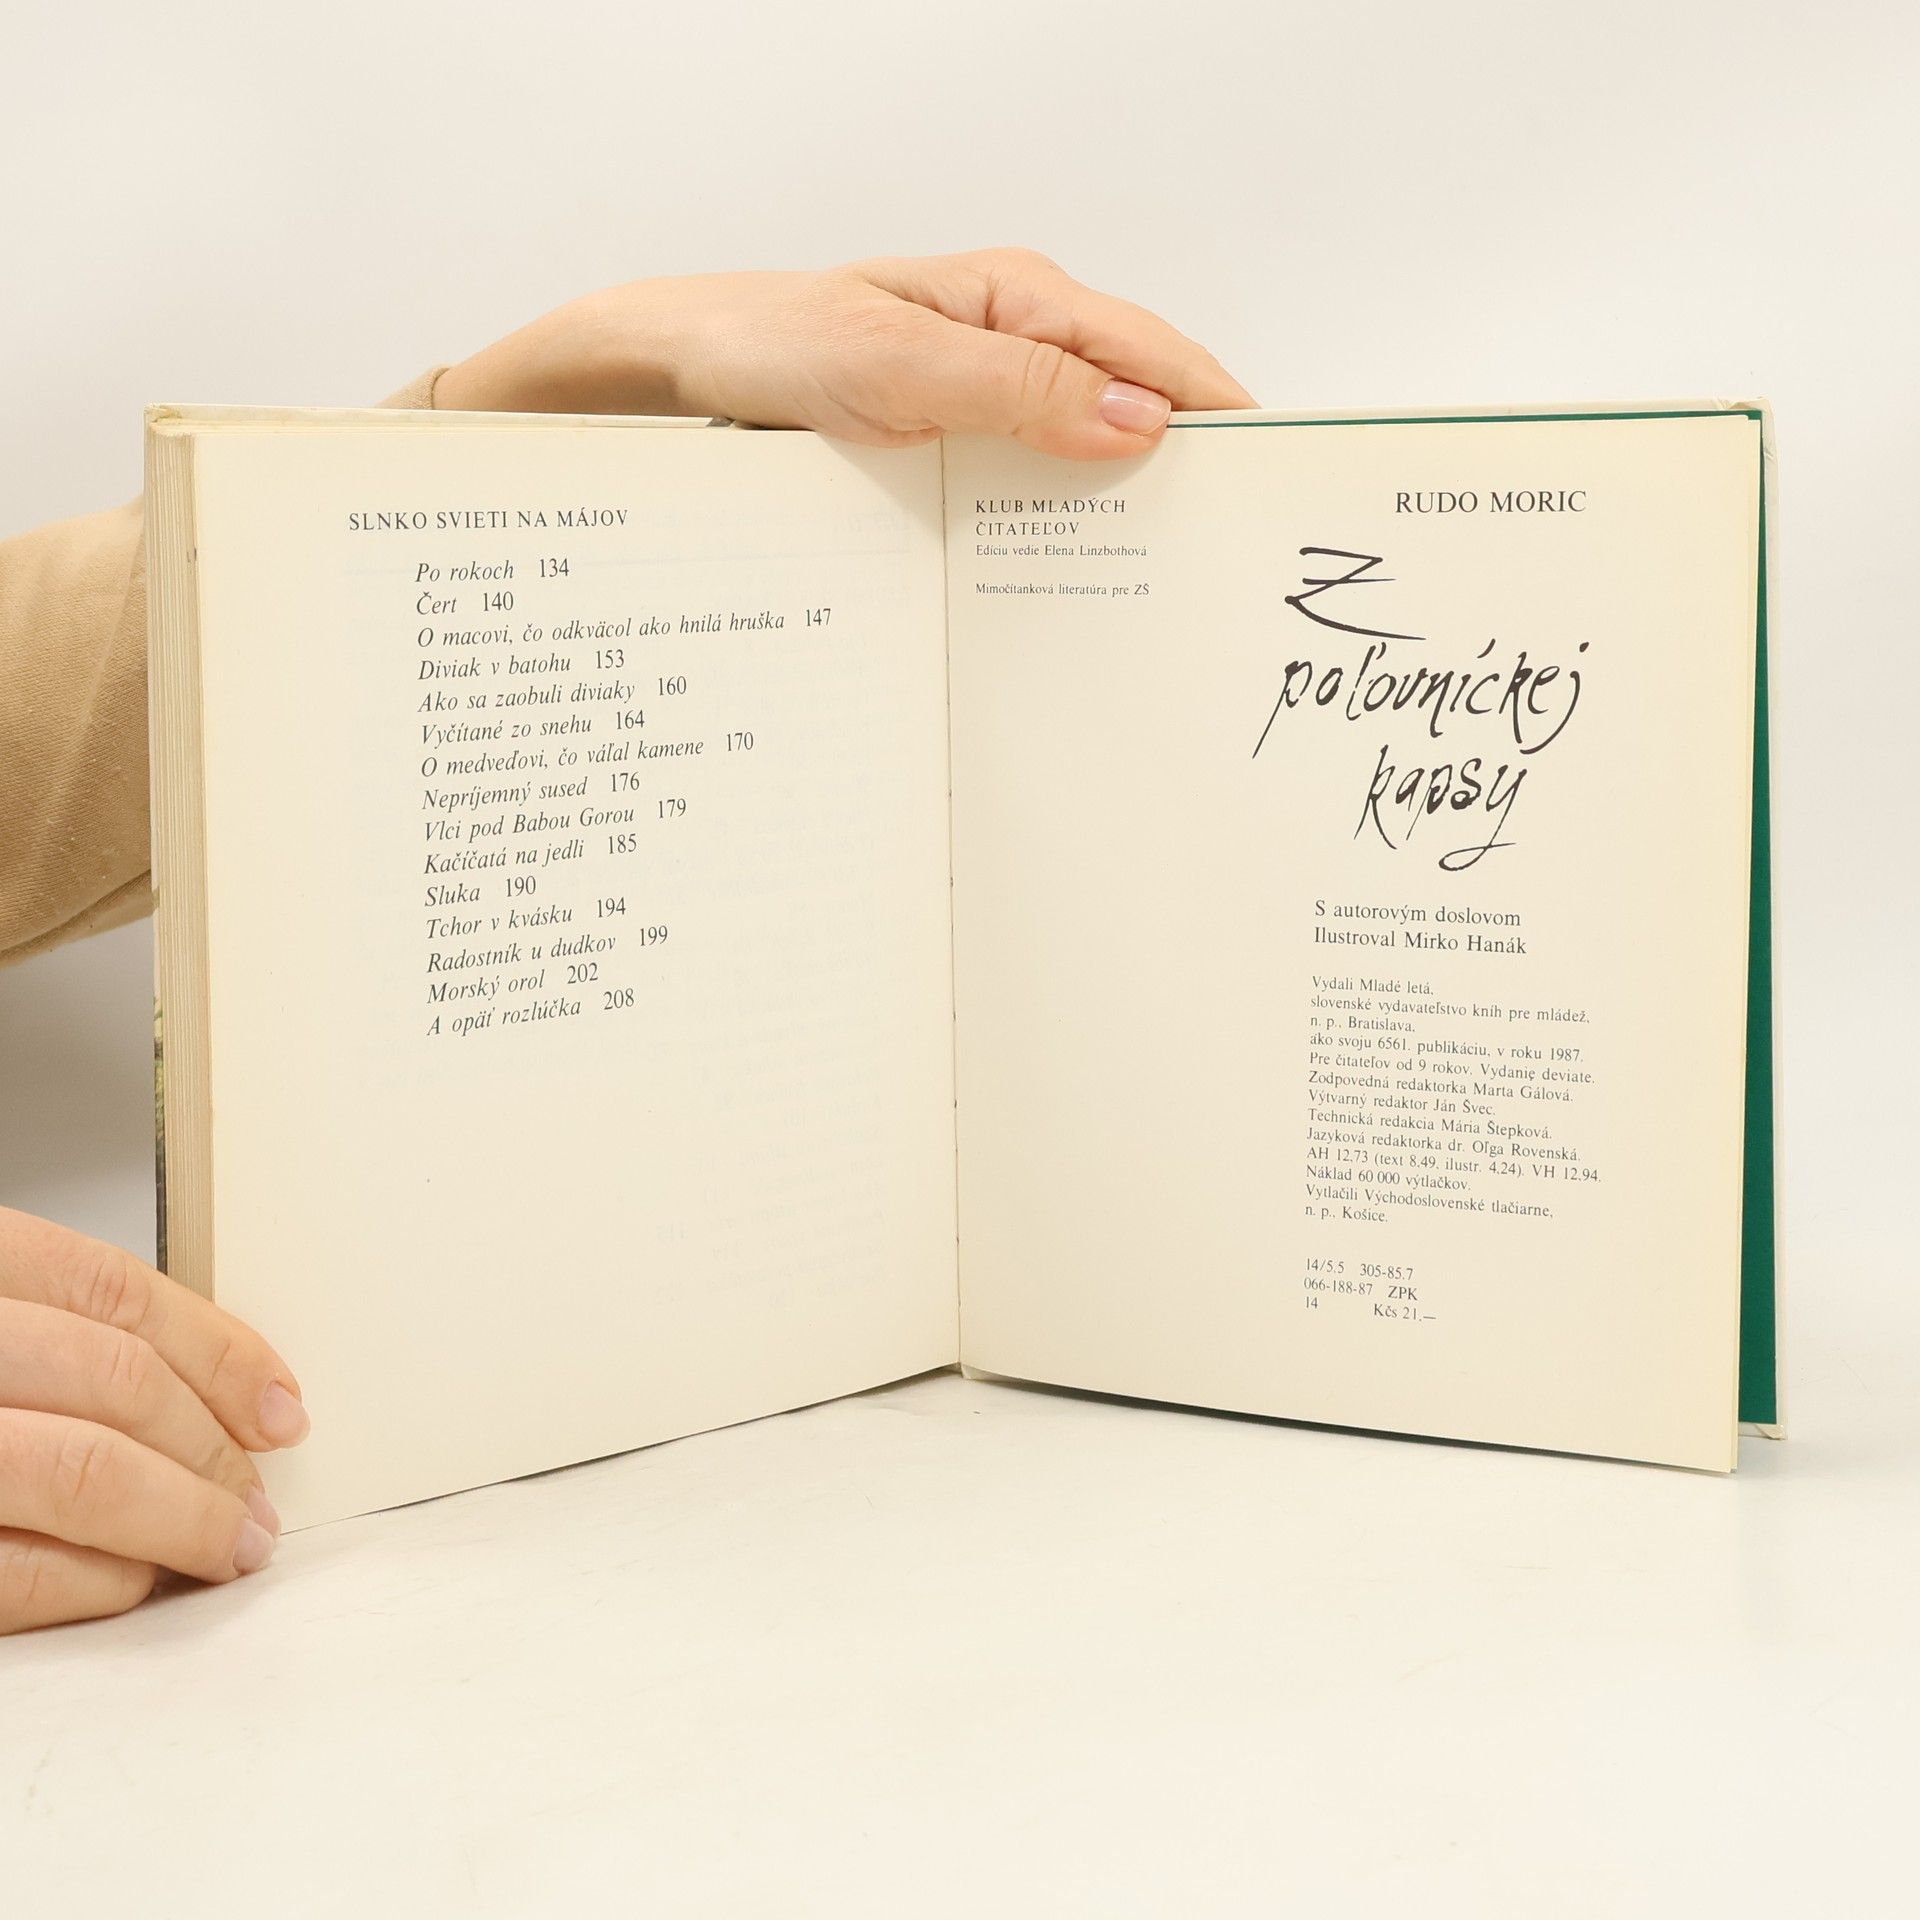 SLNKO SVIETI NA MÁJOV
Po rokoch 134
Čert 140
O macovi, čo odkväcol ako hnilá hruška 147
Diviak v batohu 153
Ako sa zaobuli diviaky 160
Vyčítané zo snehu 164
O medveďovi, čo váľal kamene 170
Nepríjemný sused 176
Vlci pod Babou Gorou 179
Kačíčatá na jedli 185
Sluka 190
Tchor v kvásku 194
Radostník u dudkov 199
Morský orol 202
A opäť rozlúčka 208
KLUB MLADÝCH
ČITATEĽOV
Edíciu vedie Elena Linzbothová
Mimočítanková literatúra pre ZŠ
RUDO MORIC
Z
poľovníckej
kapsy
S autorovým doslovom
Ilustroval Mirko Hanák
Vydali Mladé letá,
slovenské vydavateľstvo kníh pre mládež,
n. p., Bratislava,
ako svoju 6561. publikáciu, v roku 1987.
Pre čitateľov od 9 rokov. Vydanie deviate.
Zodpovedná redaktorka Marta Gálová.
Výtvarný redaktor Ján Švec.
Technická redakcia Mária Štepková.
Jazyková redaktorka dr. Oľga Rovenská.
AH 12,73 (text 8,49, ilustr. 4,24). VH 12,94.
Náklad 60 000 výtlačkov.
Vytlačili Východoslovenské tlačiarne,
n. p., Košice.
14/5.5 305-85.7
066-188-87 ZPK
14 Kčs 21,—